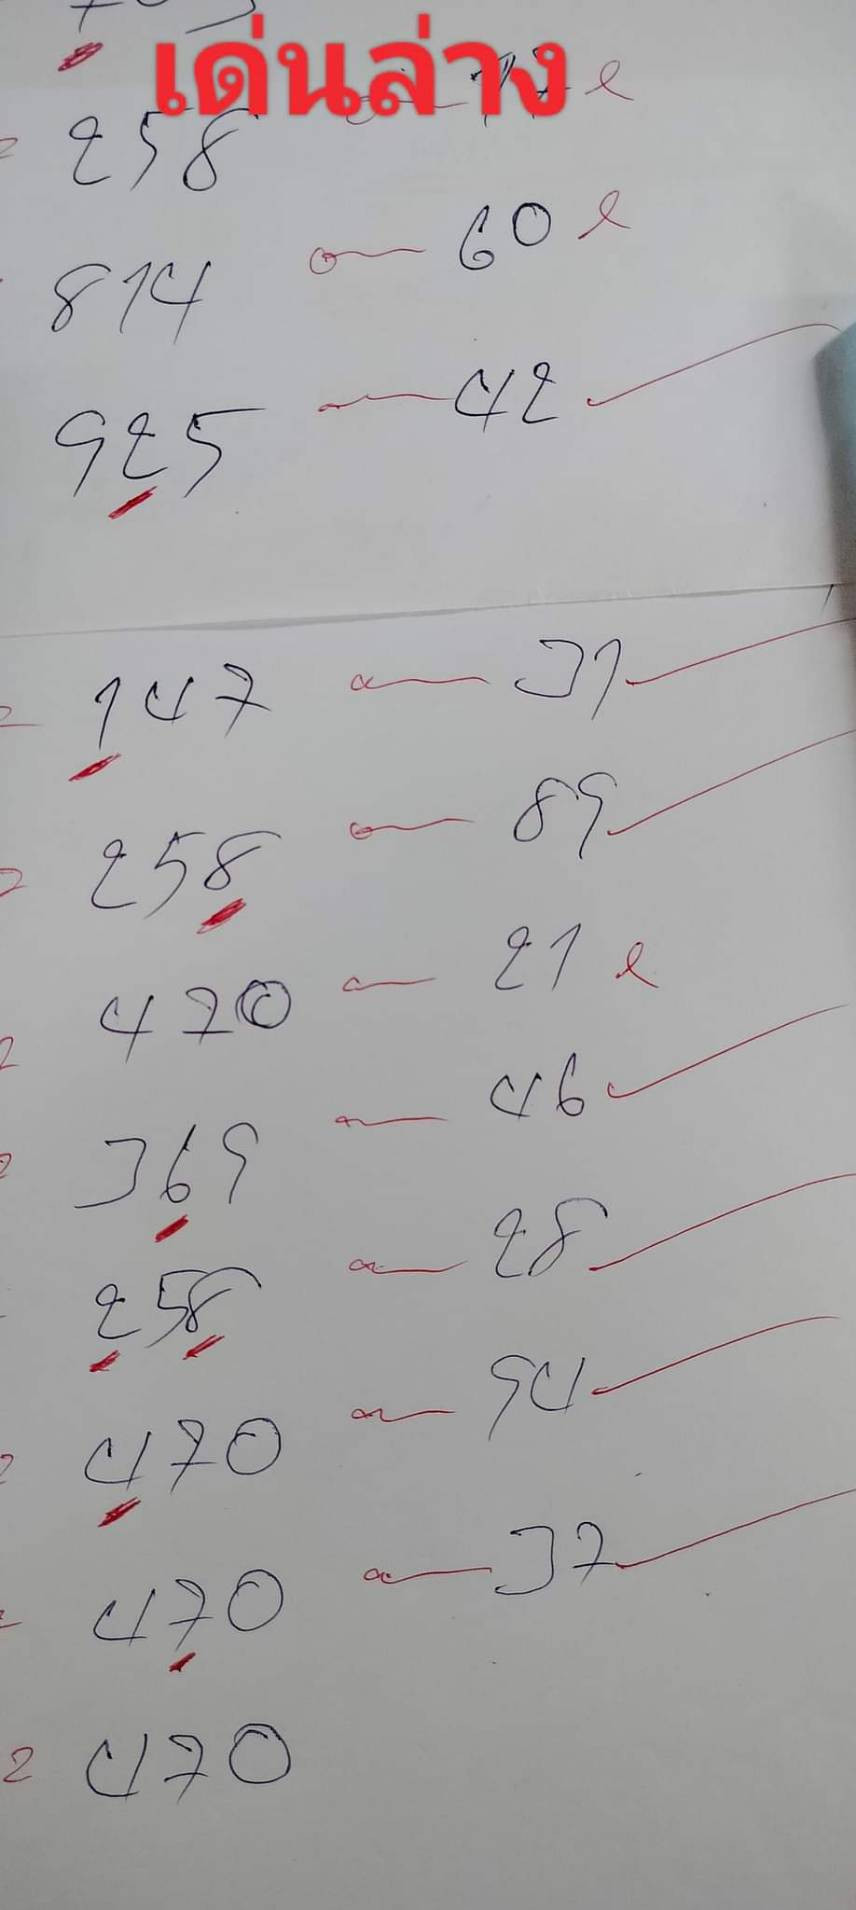 เด่นล่าง
258
814 60
925 42
147 31
258 89
470 21
369 46
258 28
470 94
470 37
2 470